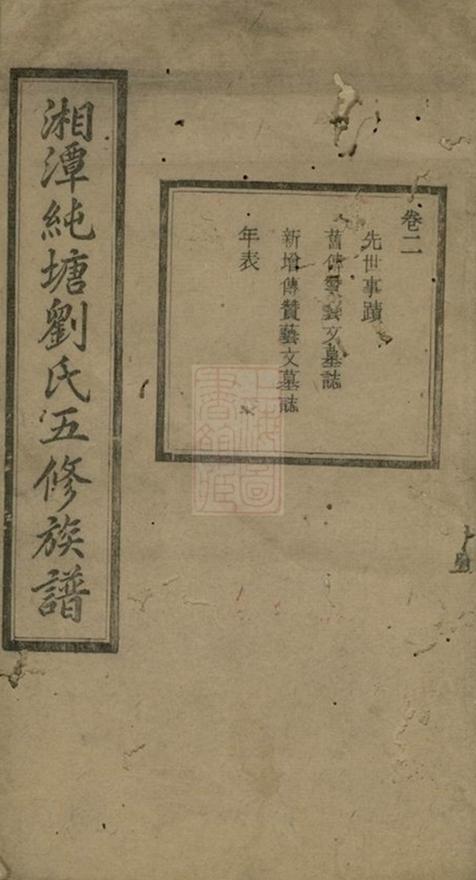 湘潭純塘劉氏五修族譜
卷二
先世事蹟
舊傳贊藝文墓誌
新增傳贊藝文墓誌
年表